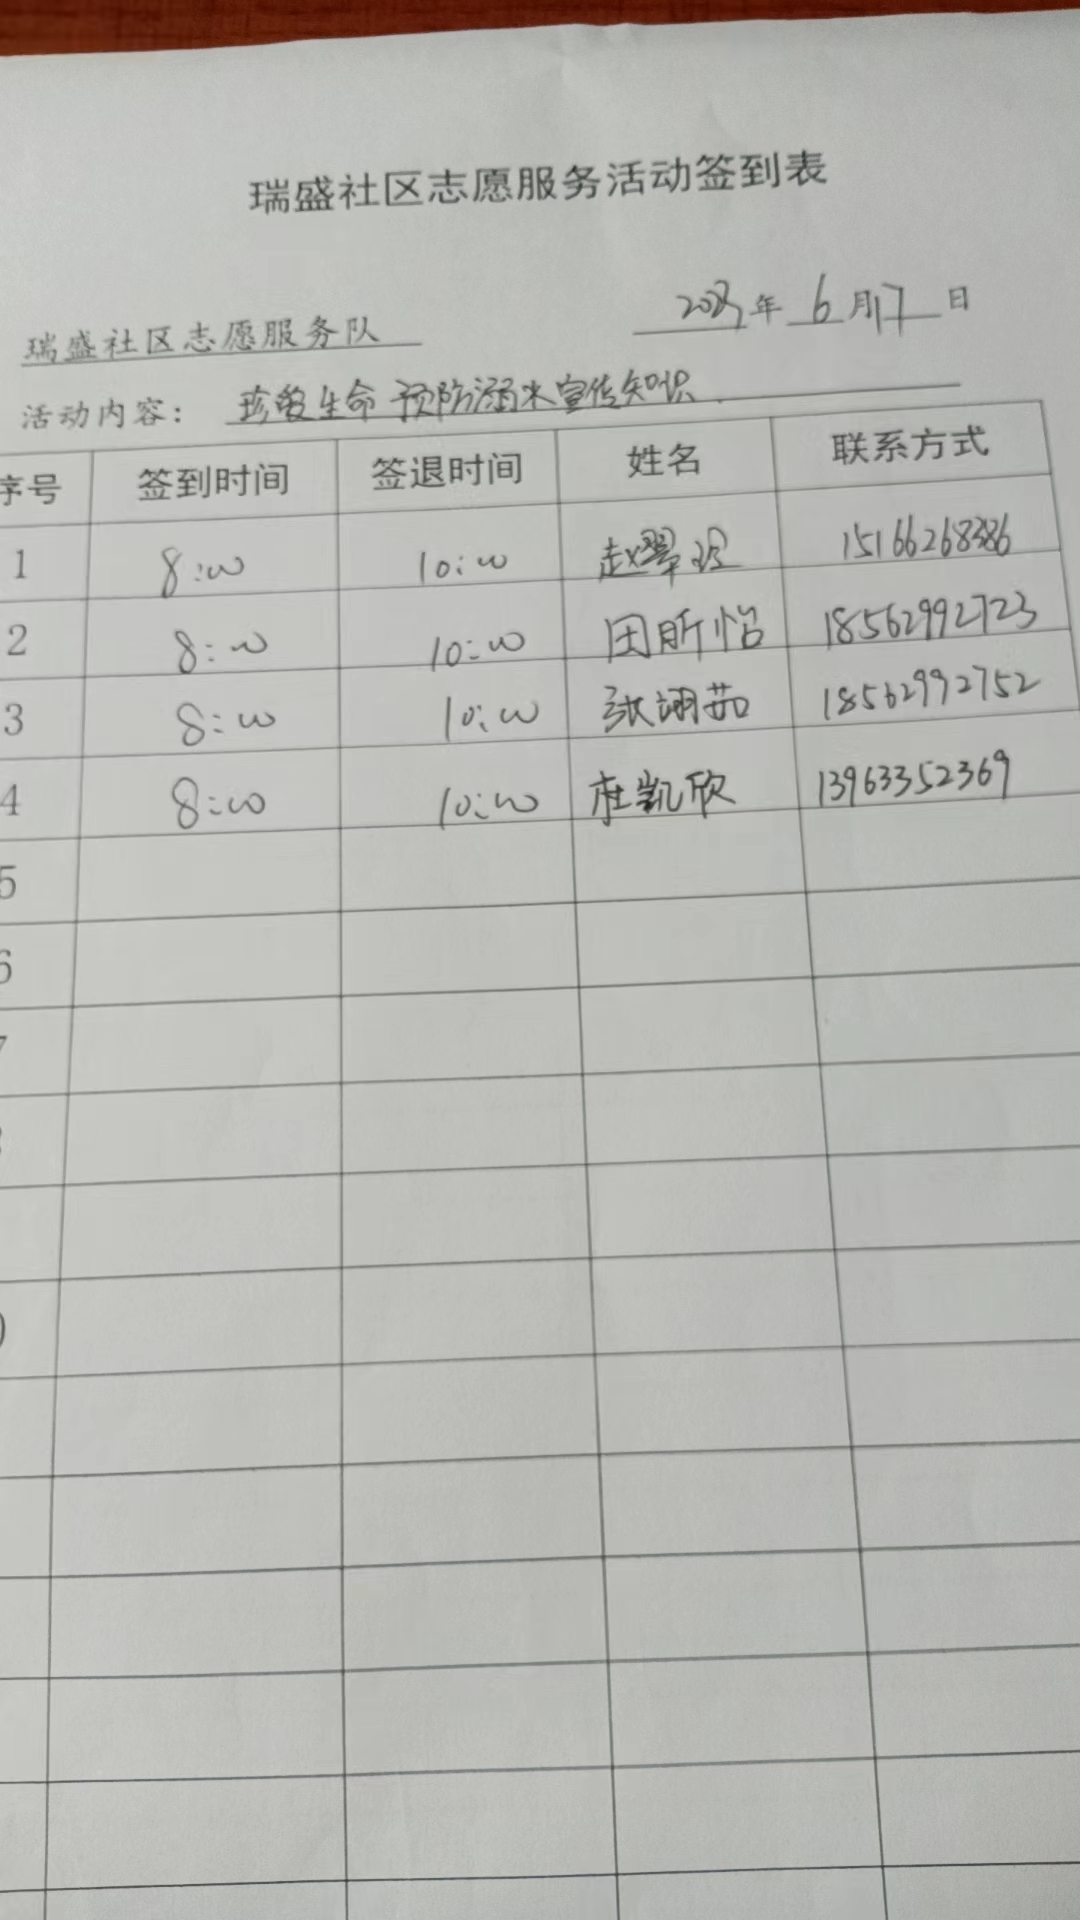 瑞盛社区志愿服务活动签到表
年 6 月 17 日
瑞盛社区志愿服务队
活动内容： 珍爱生命 预防溺水宣传知识.
序号 签到时间 签退时间 姓名 联系方式
1 8:00 10:00 赵翠玲 15166268386
2 8:00 10:00 田昕怡 18562992723
3 8:00 10:00 张翊茹 18562992752
4 8:00 10:00 杜凯欣 13963352369
5
6
7